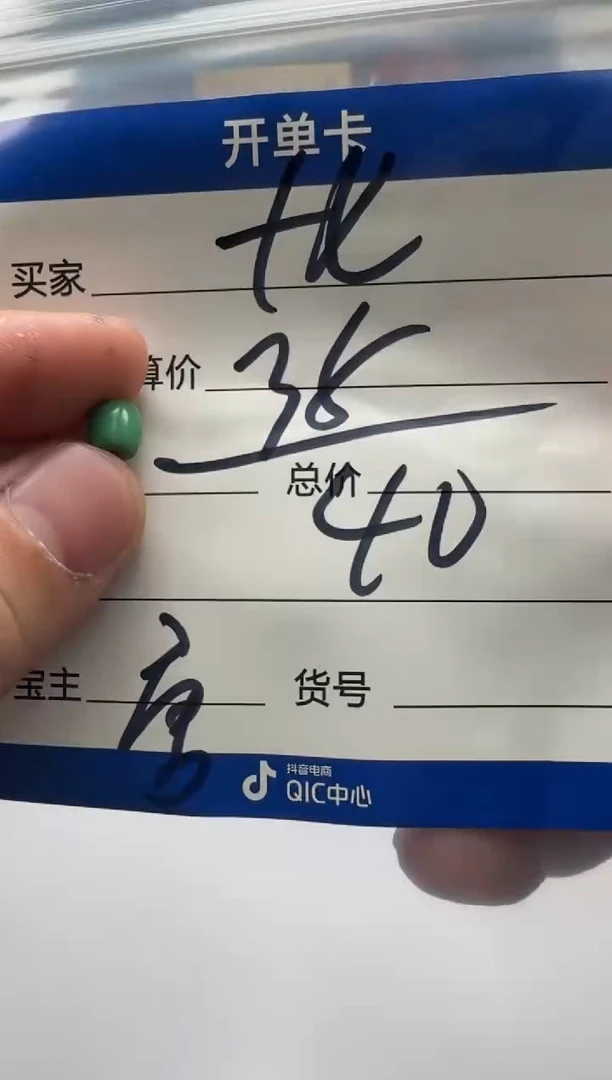 开单卡
买家
算价 38
总价 40
宝主 唐 货号
抖音电商
QIC中心